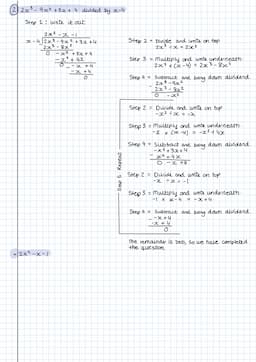 ② 2x³ - 9x² + 3x + 4 divided by x-4
Step 1: Write it out
2x² - x - 1
x-4 | 2x³ - 9x² + 3x + 4
2x³ - 8x²
0 - x² + 3x + 4
- x² + 4x
0 - x + 4
- x + 4
0
Step 2 = Divide and write on top
2x³ ÷ x = 2x²
Step 3 = Multiply and write underneath
2x² × (x-4) = 2x³ - 8x²
Step 4 = Subtract and bring down dividend
2x³ - 9x²
- 2x³ - 8x²
0 - x²
Step 5: Repeat
Step 2 = Divide and write on top
-x² ÷ x = -x
Step 3 = Multiply and write underneath
-x × (x-4) = -x² + 4x
Step 4 = Subtract and bring down dividend
-x² + 3x + 4
- -x² + 4x
0 - x + 4
Step 2 = Divide and write on top
-x ÷ x = -1
Step 3 = Multiply and write underneath
-1 × x-4 = -x+4
Step 4 = Subtract and bring down dividend
-x + 4
- -x + 4
0
The remainder is zero, so we have completed
the question.
= 2x² - x - 1